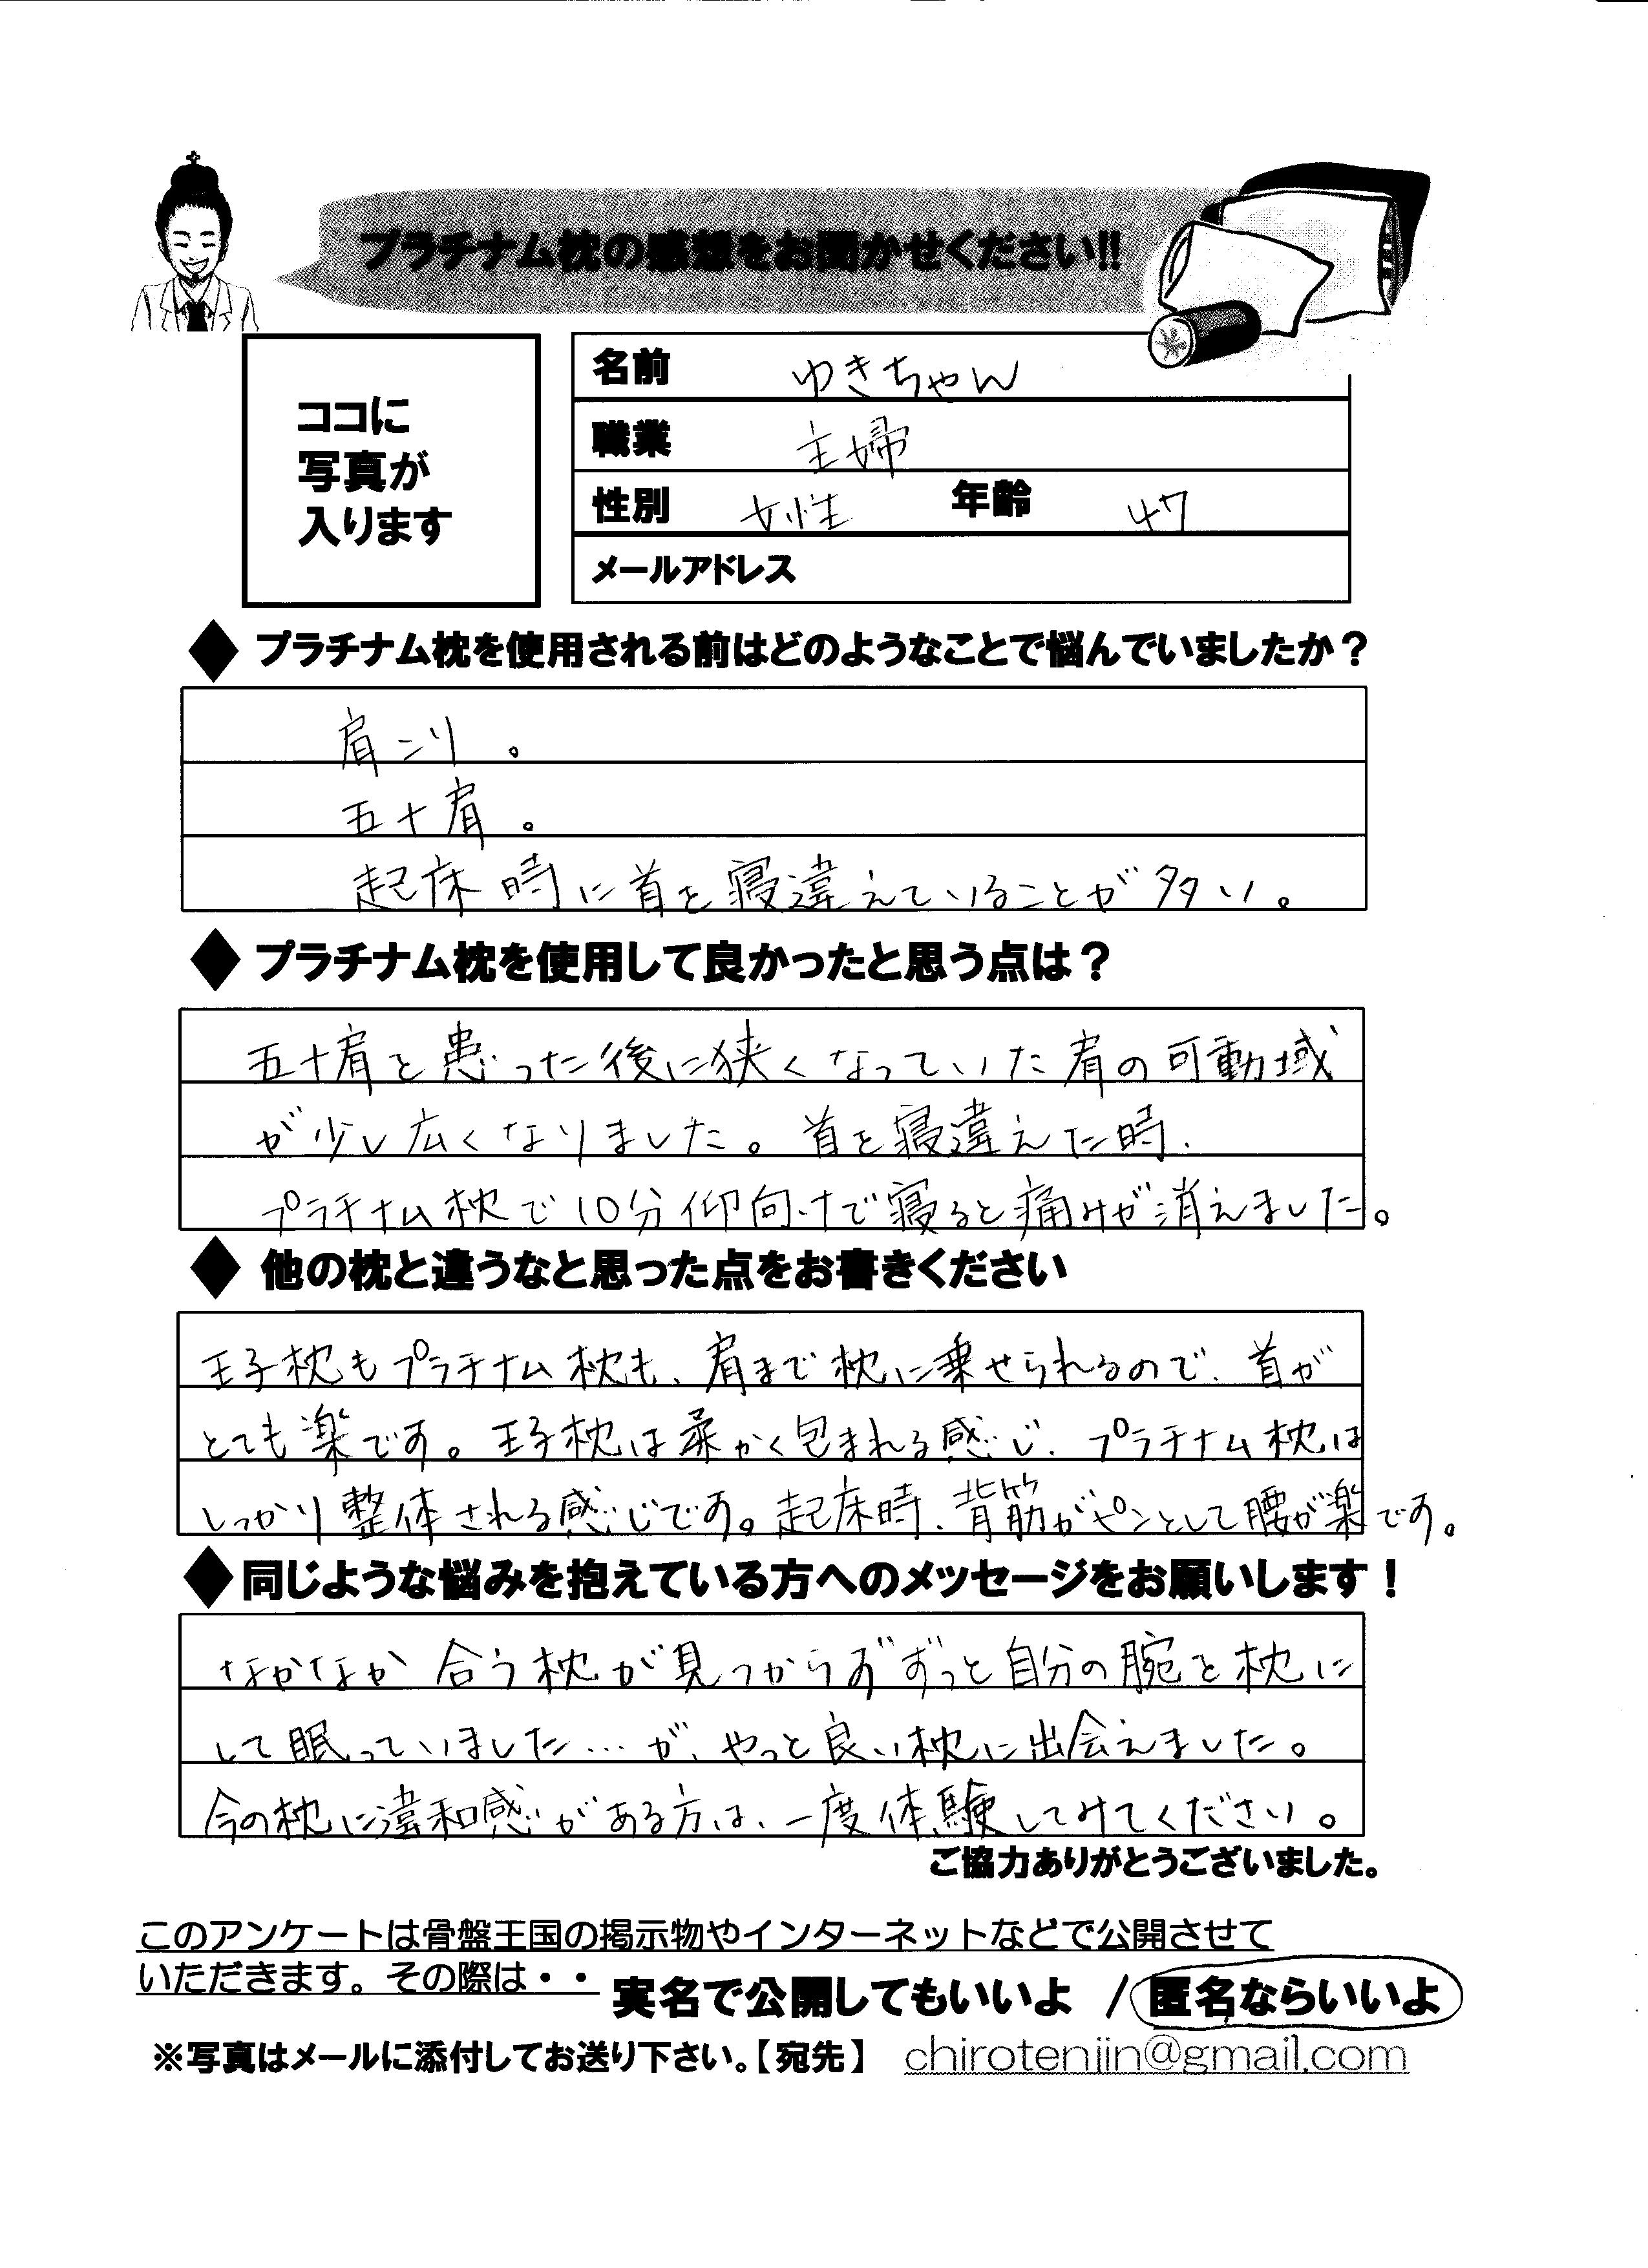 プラチナム枕の感想をお聞かせください!!
ココに
写真が
入ります
名前 ゆきちゃん
職業 主婦
性別 女性 年齢 47
メールアドレス
◆プラチナム枕を使用される前はどのようなことで悩んでいましたか？
肩こり。
五十肩。
起床時に首を寝違えていることが多い。
◆プラチナム枕を使用して良かったと思う点は？
五十肩を患った後に狭くなっていた肩の可動域
が少し広くなりました。首を寝違えた時、
プラチナム枕で10分仰向けで寝ると痛みが消えました。
◆他の枕と違うなと思った点をお書きください
王子枕もプラチナム枕も、肩まで枕に乗せられるので、首が
とても楽です。王子枕は柔かく包まれる感じ、プラチナム枕は
しっかり整体される感じです。起床時、背筋がピンとして腰が楽です。
◆同じような悩みを抱えている方へのメッセージをお願いします！
なかなか合う枕が見つからずずっと自分の腕を枕に
して眠っていました…が、やっと良い枕に出会えました。
今の枕に違和感がある方は、一度体験してみてください。
ご協力ありがとうございました。
このアンケートは骨盤王国の掲示物やインターネットなどで公開させて
いただきます。その際は・・ 実名で公開してもいいよ / 匿名ならいいよ
※写真はメールに添付してお送り下さい。【宛先】 chirotenjin@gmail.com